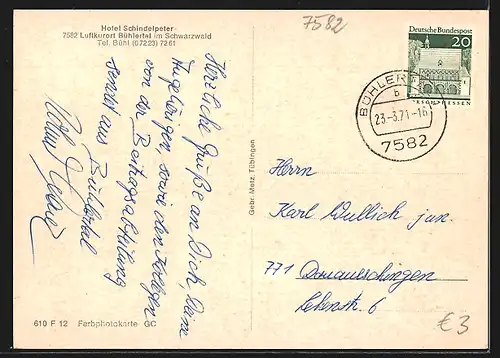 Hotel Schindelpeter
7582 Luftkurort Bühlertal im Schwarzwald
Tel. Bühl (07223) 7261
7582
Deutsche Bundespost
20
BÜHLERTAL
b
23.-3.71-16
7582
Herzliche Grüße an Dich, Deine
Angehörigen sowie den Kollegen
von der Beitragsabteilung
sendet aus Bühlertal
Gebr. Metz, Tübingen
Herrn
Karl Wullich jun.
771 Donaueschingen
Lehenstr. 6
610 F 12 Farbphotokarte GC
€3